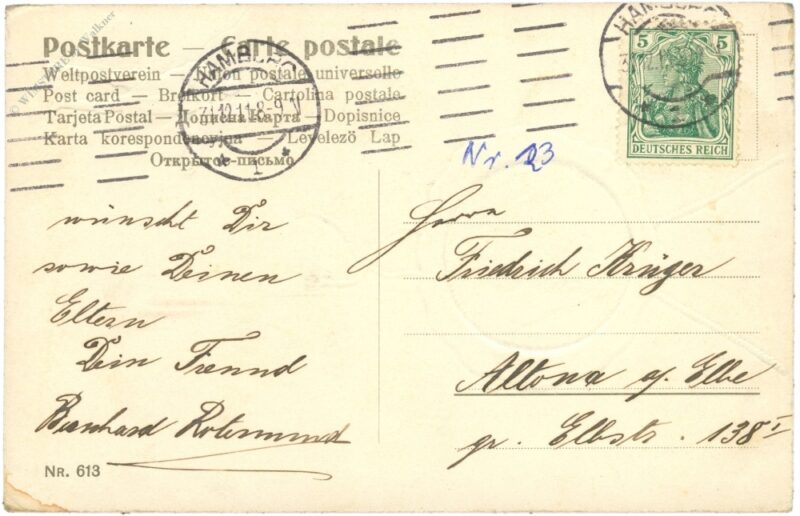 Postkarte — Carte postale
Weltpostverein — Union postale universelle
Post card — Brefkort — Cartolina postale
Tarjeta Postal — Дописна Карта — Dopisnice
Karta korespondencyjna — Levelező Lap
Открытое-письмо
HAMBURG
31.12.11.8-9.V
* 1 *
HAMBURG
5 5
DEUTSCHES REICH
Nr. 23
wünscht Dir
sowie Deinen
Eltern
Dein Freund
Bernhard Rotermund
Nr. 613
Herrn
Friedrich Krüger
Altona a. Elbe
gr. Elbstr. 138 I